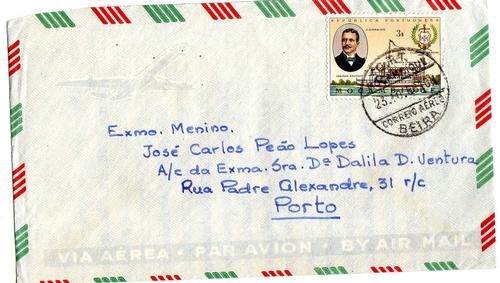 REPÚBLICA PORTUGUESA
CORREIOS
3$
MOÇAMBIQUE
CORREIO AÉREO
BEIRA
Exmo. Menino.
José Carlos Peão Lopes
A/c da Exma. Sra. Dª Dalila D. Ventura
Rua Padre Alexandre, 31 r/c
Porto
VIA AÉREA • PAR AVION • BY AIR MAIL